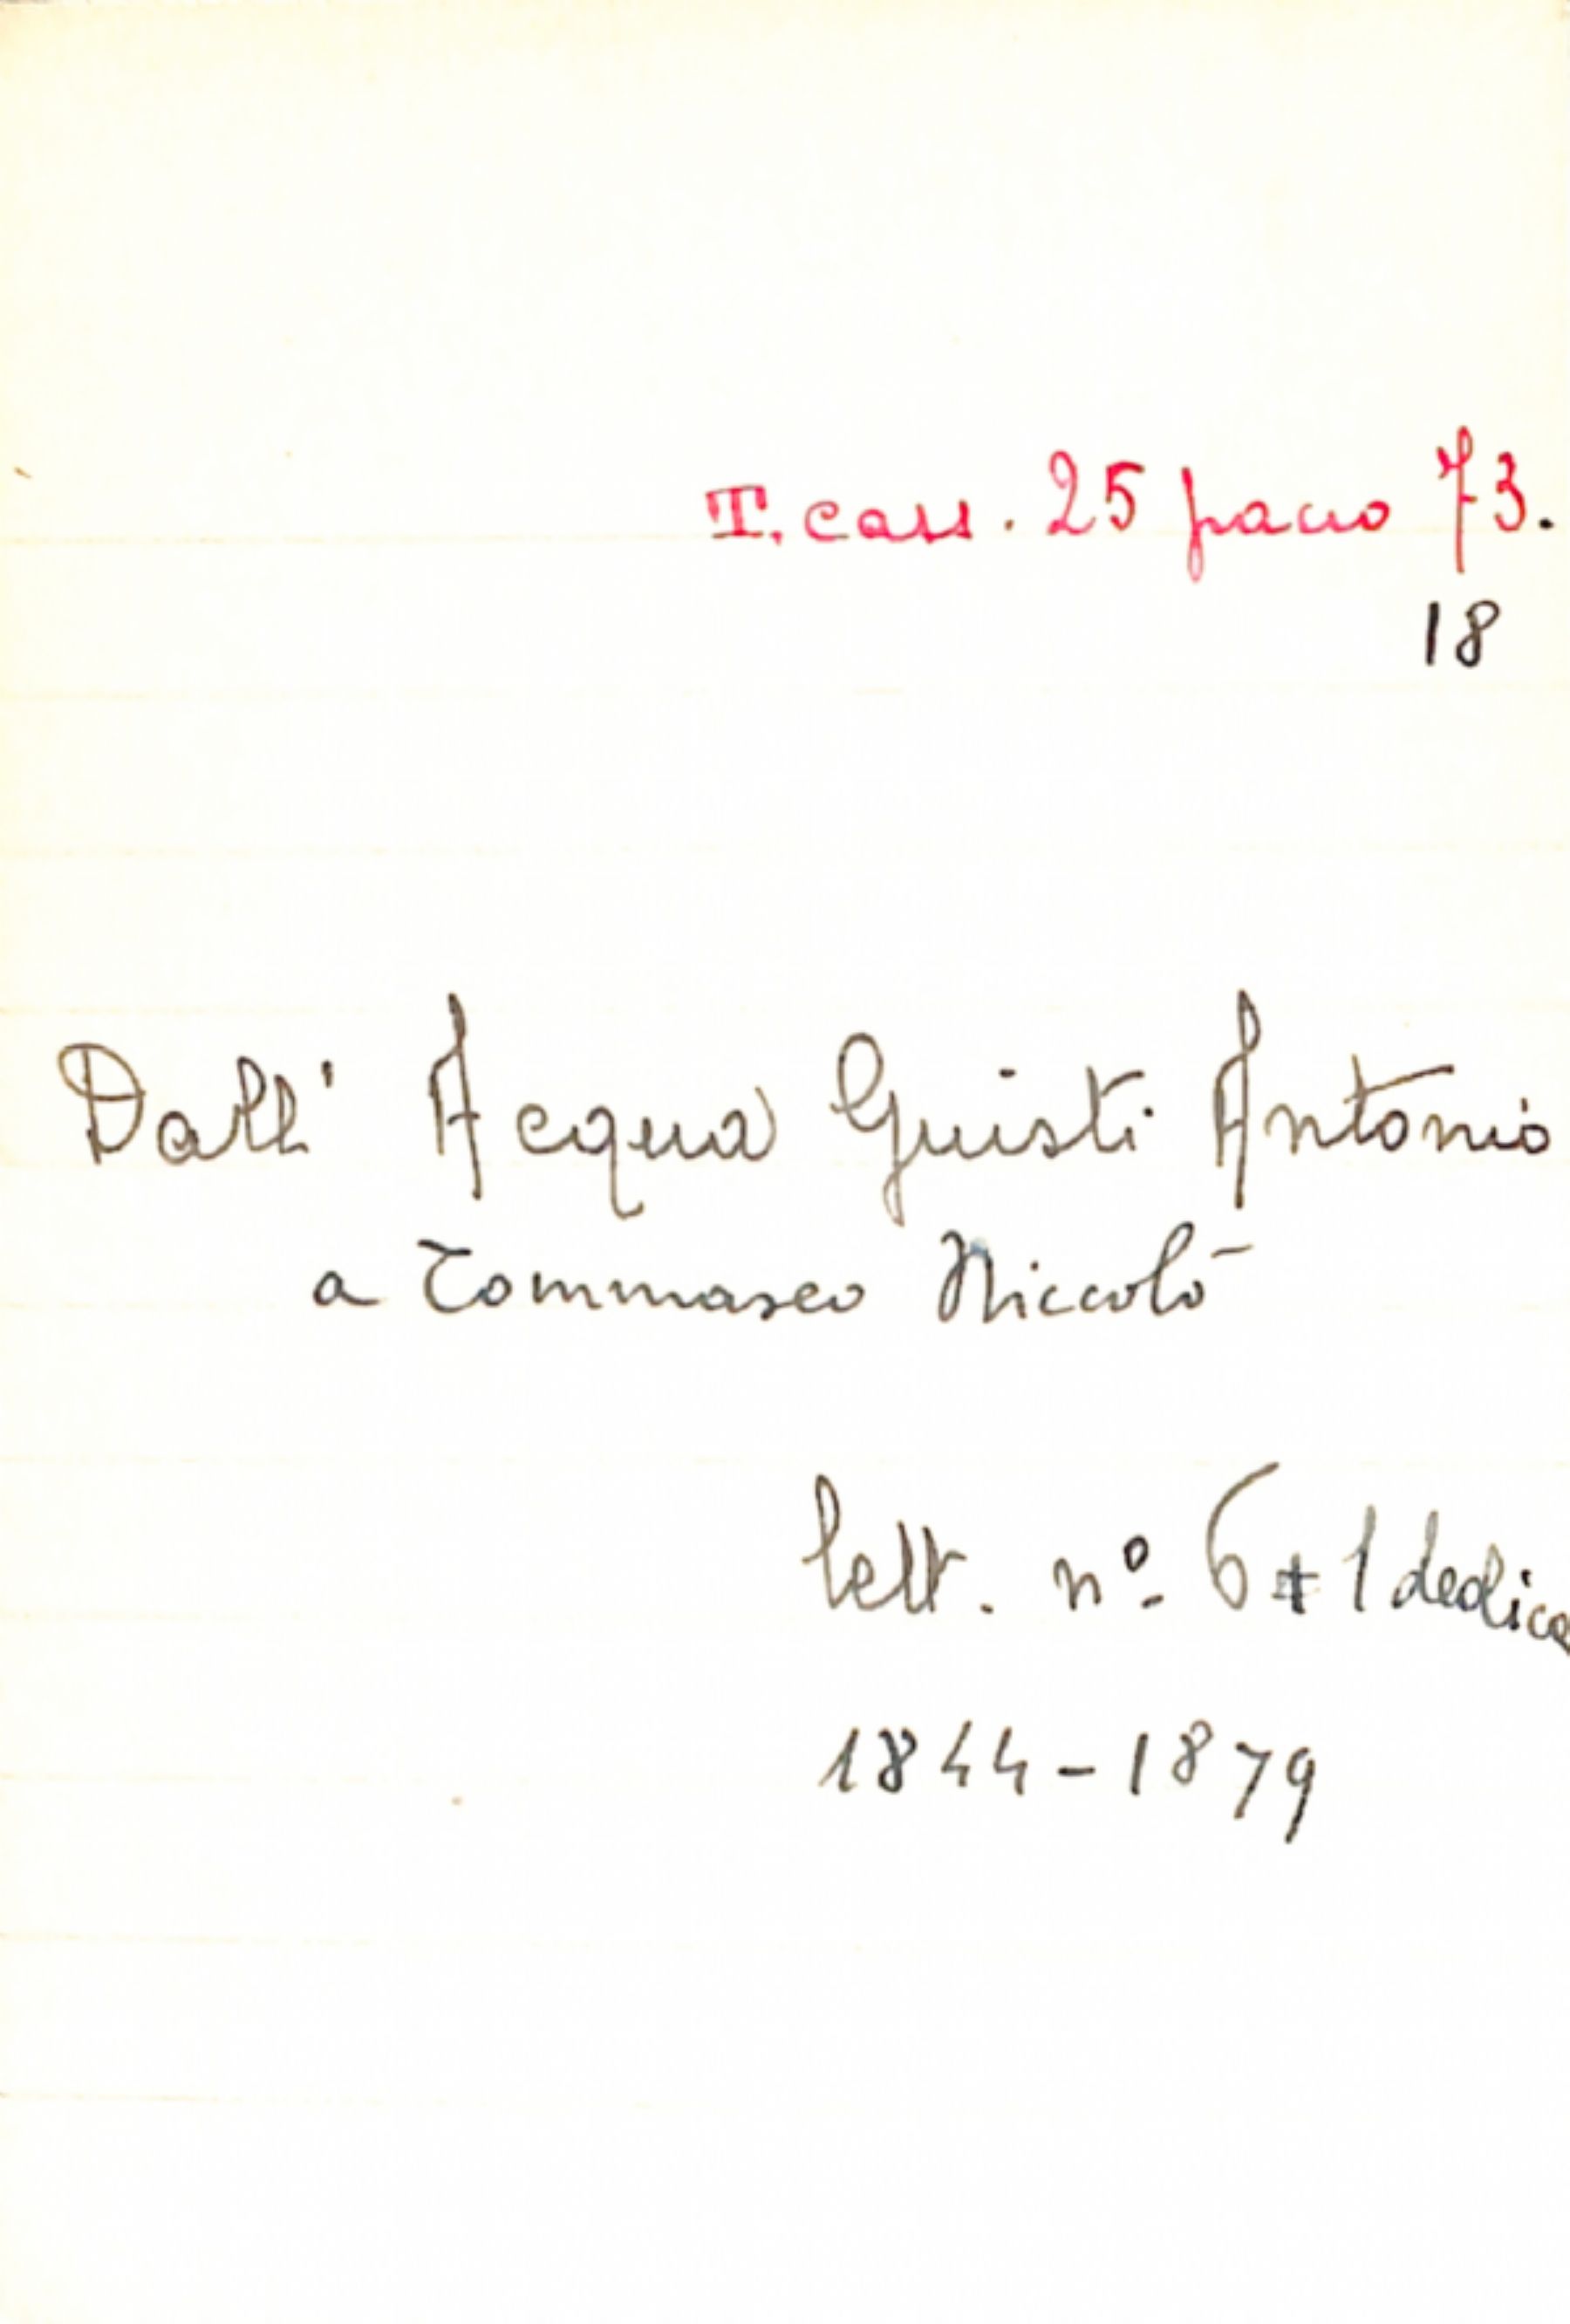 T. cass. 25 pacco 73.
18
Dall' Acqua Giusti Antonio
a Tommaseo Niccolò
lett. nº 6 + 1 dedica
1844-1879